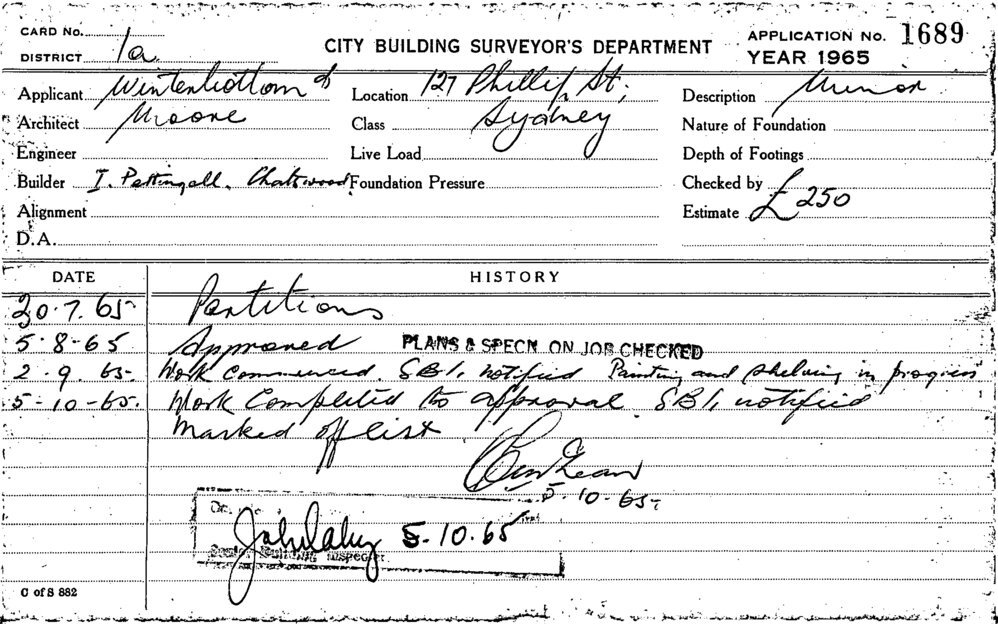 CARD No.
DISTRICT 1a
CITY BUILDING SURVEYOR'S DEPARTMENT
APPLICATION No. 1689
YEAR 1965
Applicant Winterbottom &
Location 127 Phillip St;
Description Minor
Architect Moore
Class Sydney
Nature of Foundation
Engineer
Live Load
Depth of Footings
Builder I. Pettingell. Chatswood
Foundation Pressure
Checked by
Alignment
Estimate £250
D.A.
DATE HISTORY
20.7.65 Partitions
5.8-65 Approved PLANS & SPECN. ON JOB CHECKED
2.9.65. Work commenced. SB1, notified Painting and shelving in progress
5-10-65. Work Completed to approval. SB1, notified
Marked off list
5.10-65
5.10.65
Senior Building Inspector
C of S 882